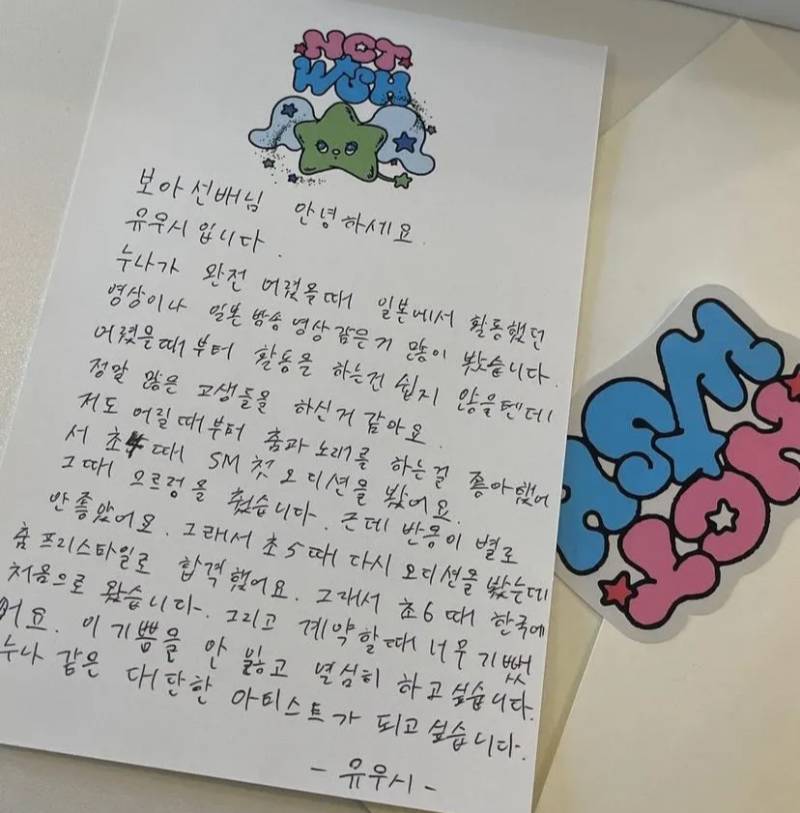 NCT
WISH
보아선배님 안녕하세요.
유우시입니다.
누나가 완전 어렸을때 일본에서 활동했던
영상이나 일본 방송 영상 같은거 많이 봤습니다.
어렸을때부터 활동을 하는건 쉽지 않을텐데
정말 많은 고생들을 하신거 같아요.
저도 어릴때부터 춤과 노래를 하는걸 좋아했어
서 초4때 SM 첫 오디션을 봤어요.
그때 으르렁을 췄습니다. 근데 반응이 별로
안 좋았어요. 그래서 초5때 다시 오디션을 봤는데
춤 프리스타일로 합격했어요. 그래서 초6때 한국에
처음으로 왔습니다. 그리고 계약할때 너무 기뻤
어요. 이 기쁨을 안 잃고 열심히 하고싶습니다.
누나 같은 대단한 아티스트가 되고싶습니다.
- 유우시 -
NCT
WISH